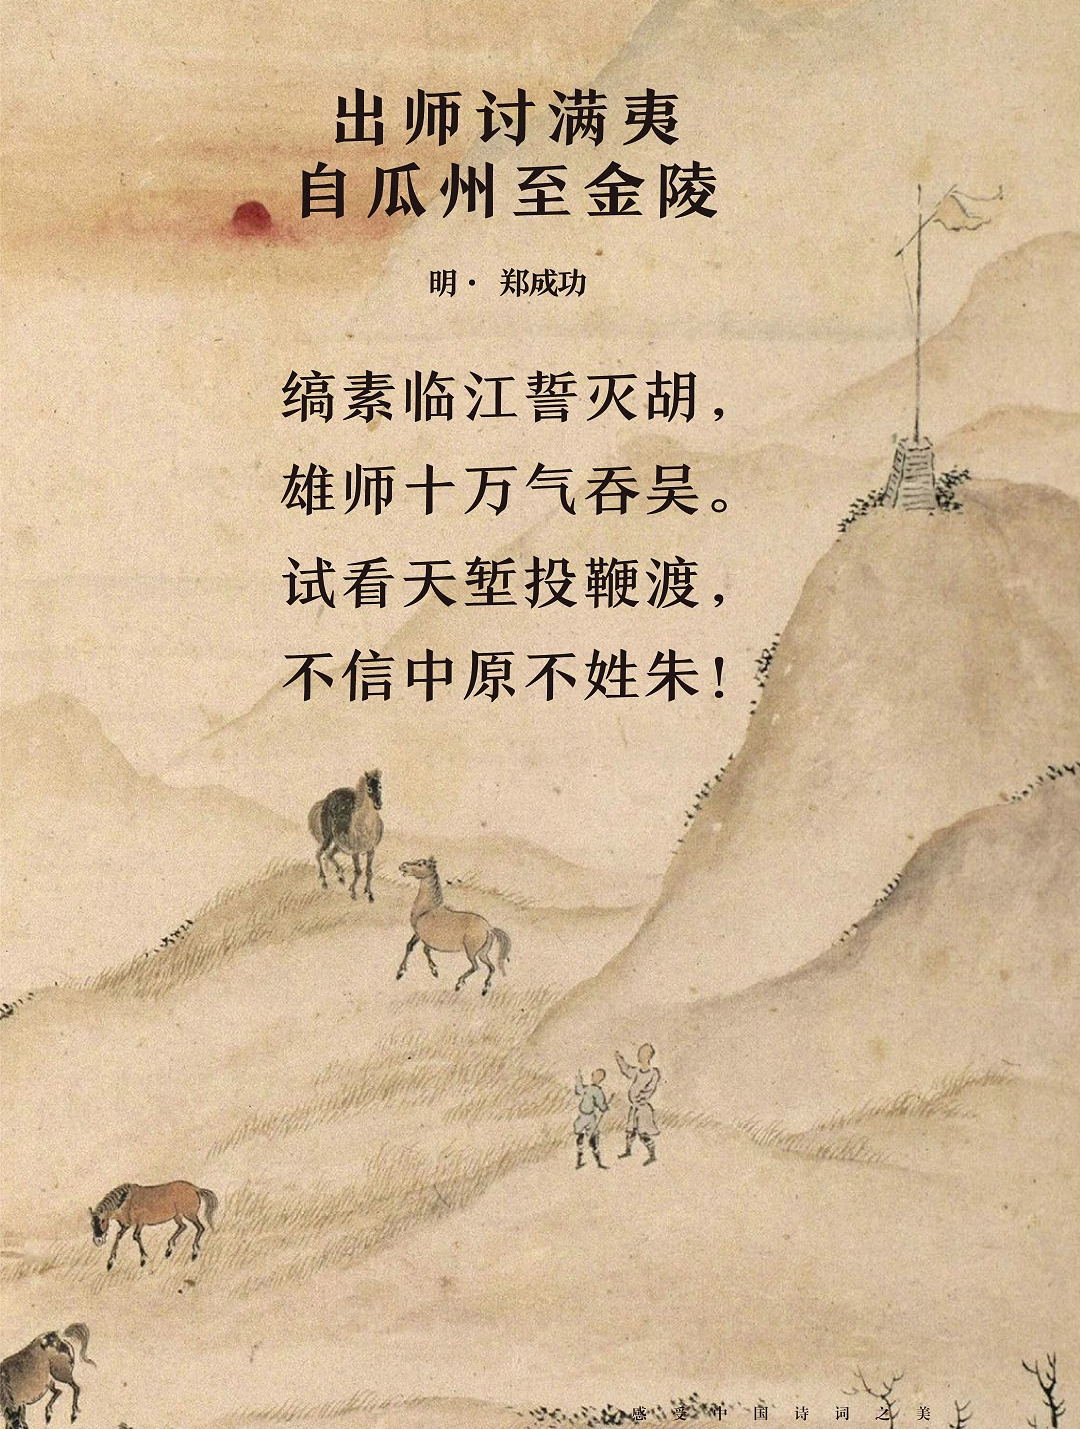 出师讨满夷
自瓜州至金陵
明· 郑成功
缟素临江誓灭胡，
雄师十万气吞吴。
试看天堑投鞭渡，
不信中原不姓朱！
感受中国诗词之美